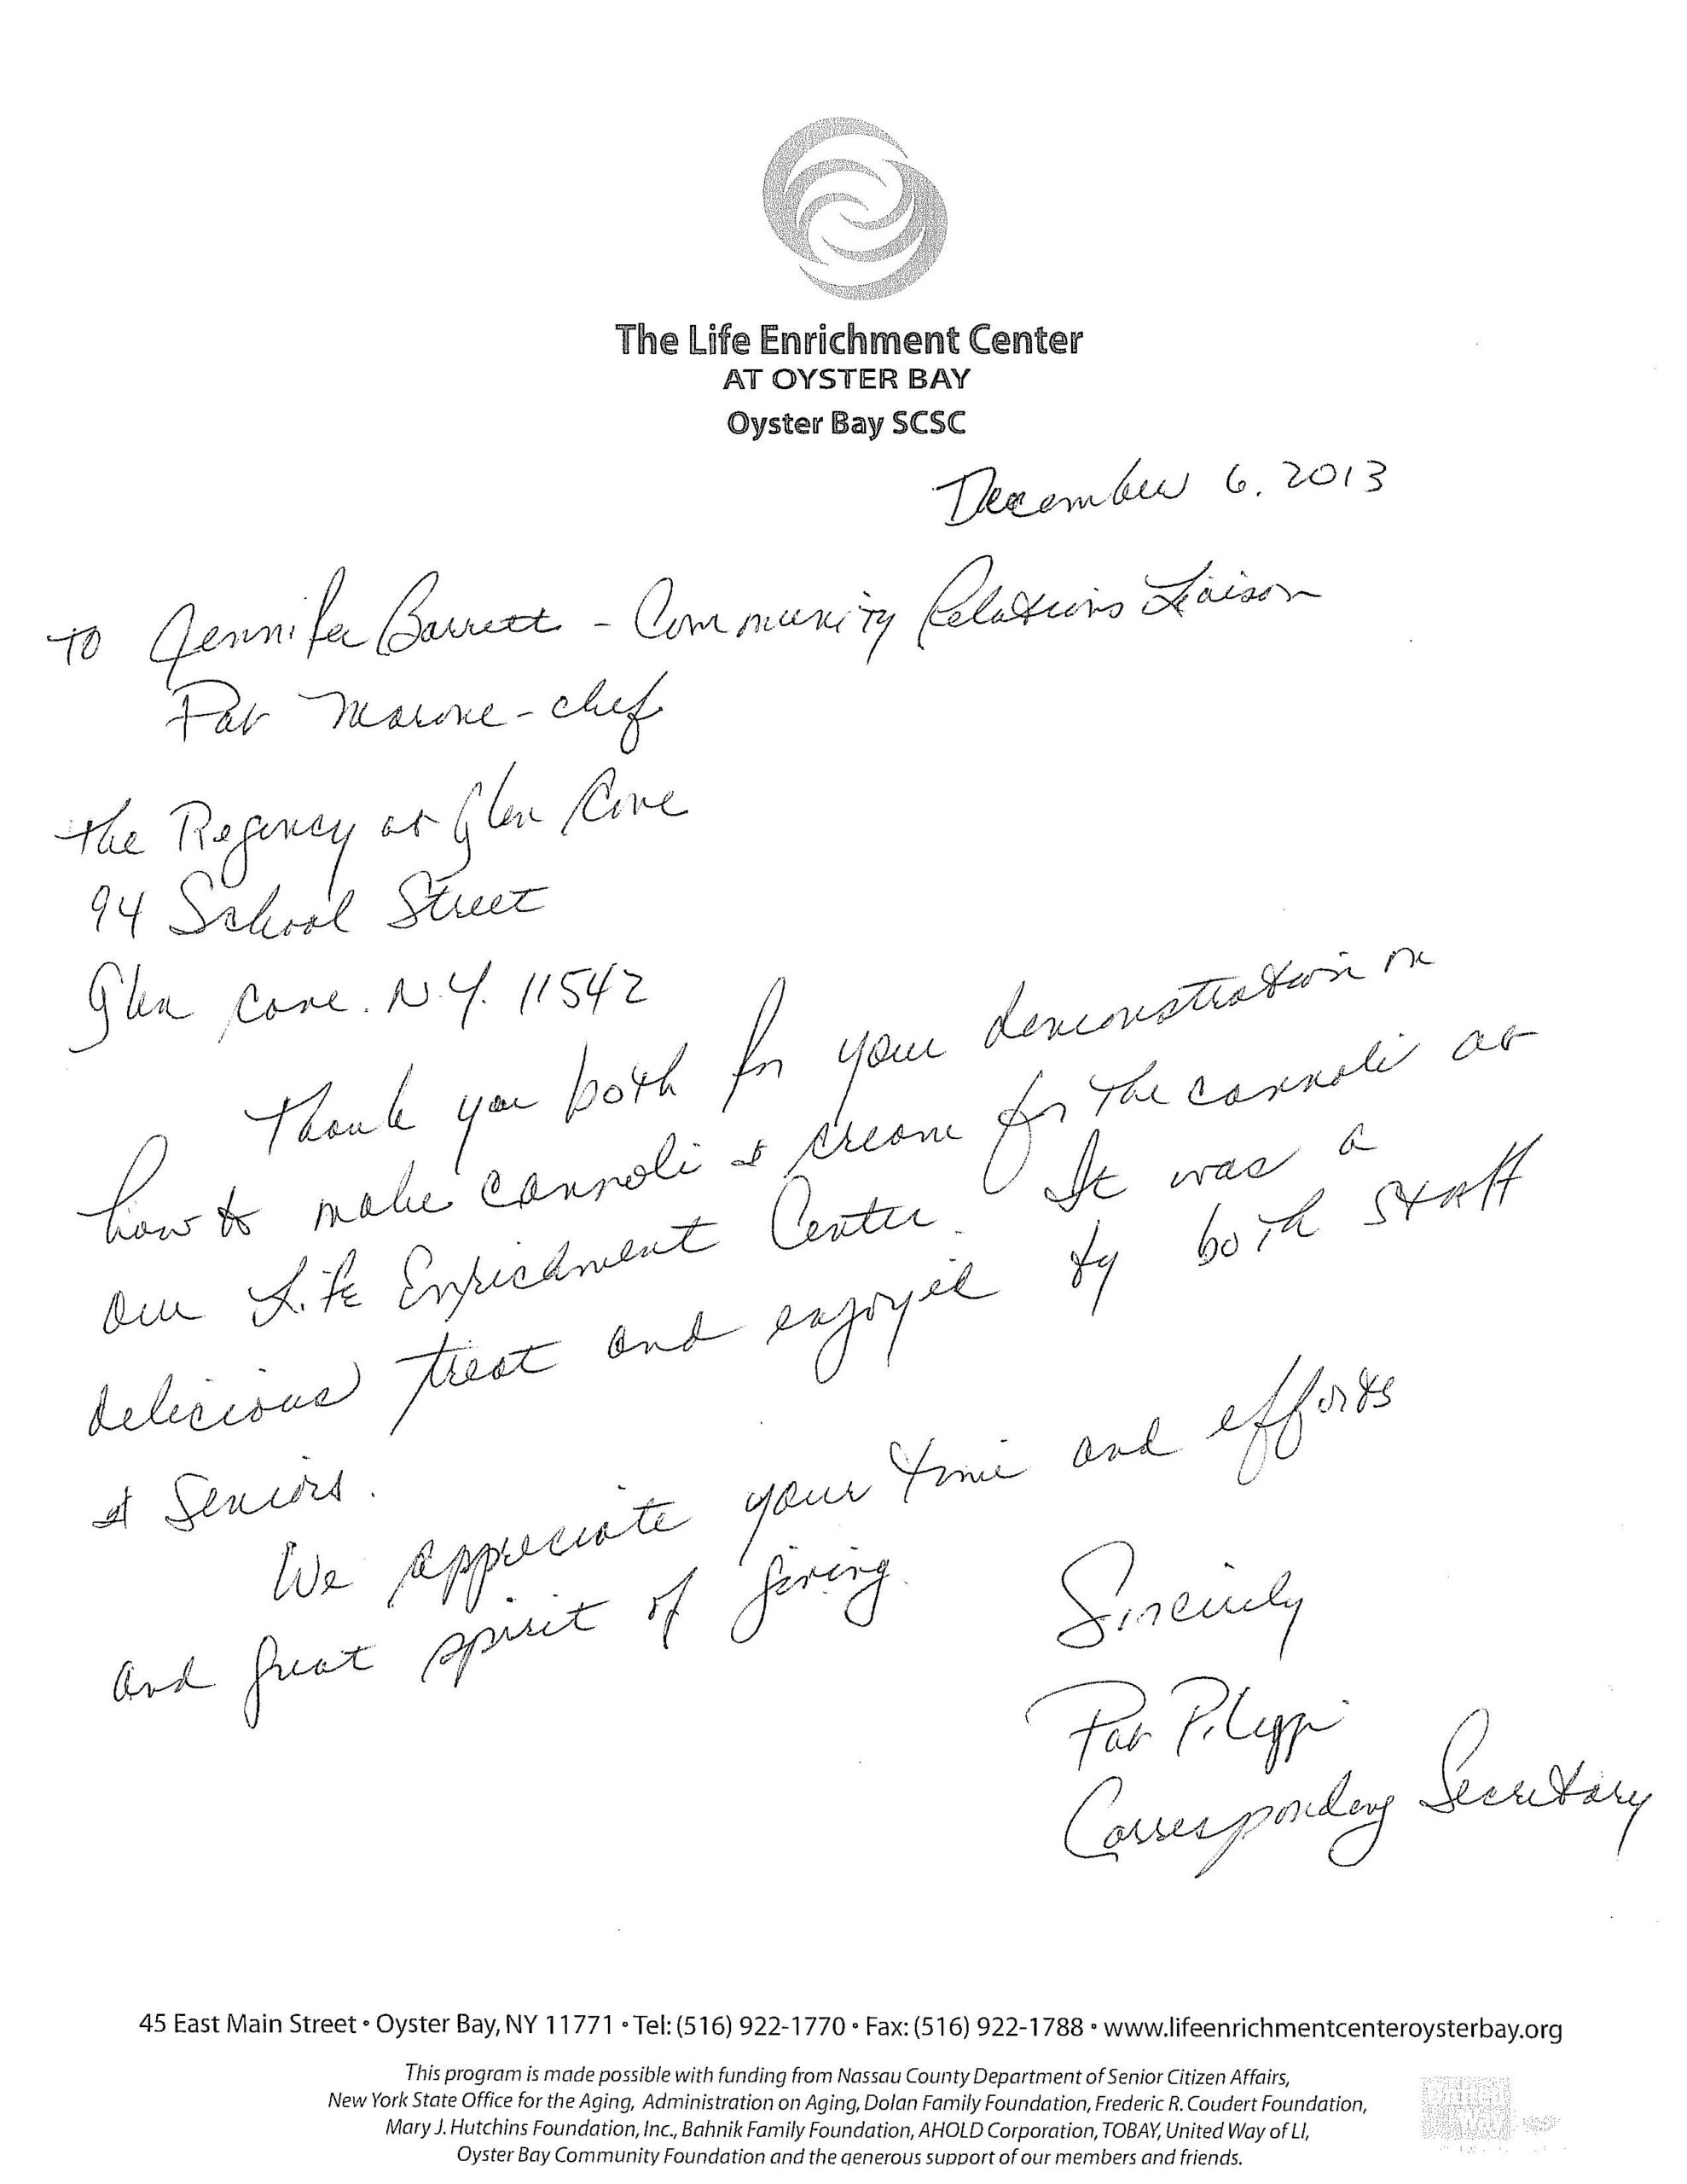 The Life Enrichment Center
AT OYSTER BAY
Oyster Bay SCSC
December 6, 2013
TO Jennifer Barrett - Community Relations Liaison
Pat Marone - chef
the Regency at Glen Cove
94 School Street
Glen Cove. N.Y. 11542
Thank you both for your demonstration on
how to make cannoli & cream for the cannoli at
our Life Enrichment Center. It was a
delicious treat and enjoyed by both staff
& Seniors.
We appreciate your time and efforts
and great spirit of giving.
Sincerely
Pat
Corresponding Secretary
45 East Main Street • Oyster Bay, NY 11771 • Tel: (516) 922-1770 • Fax: (516) 922-1788 • www.lifeenrichmentcenteroysterbay.org
This program is made possible with funding from Nassau County Department of Senior Citizen Affairs,
New York State Office for the Aging, Administration on Aging, Dolan Family Foundation, Frederic R. Coudert Foundation,
Mary J. Hutchins Foundation, Inc., Bahnik Family Foundation, AHOLD Corporation, TOBAY, United Way of LI,
Oyster Bay Community Foundation and the generous support of our members and friends.
United
Way